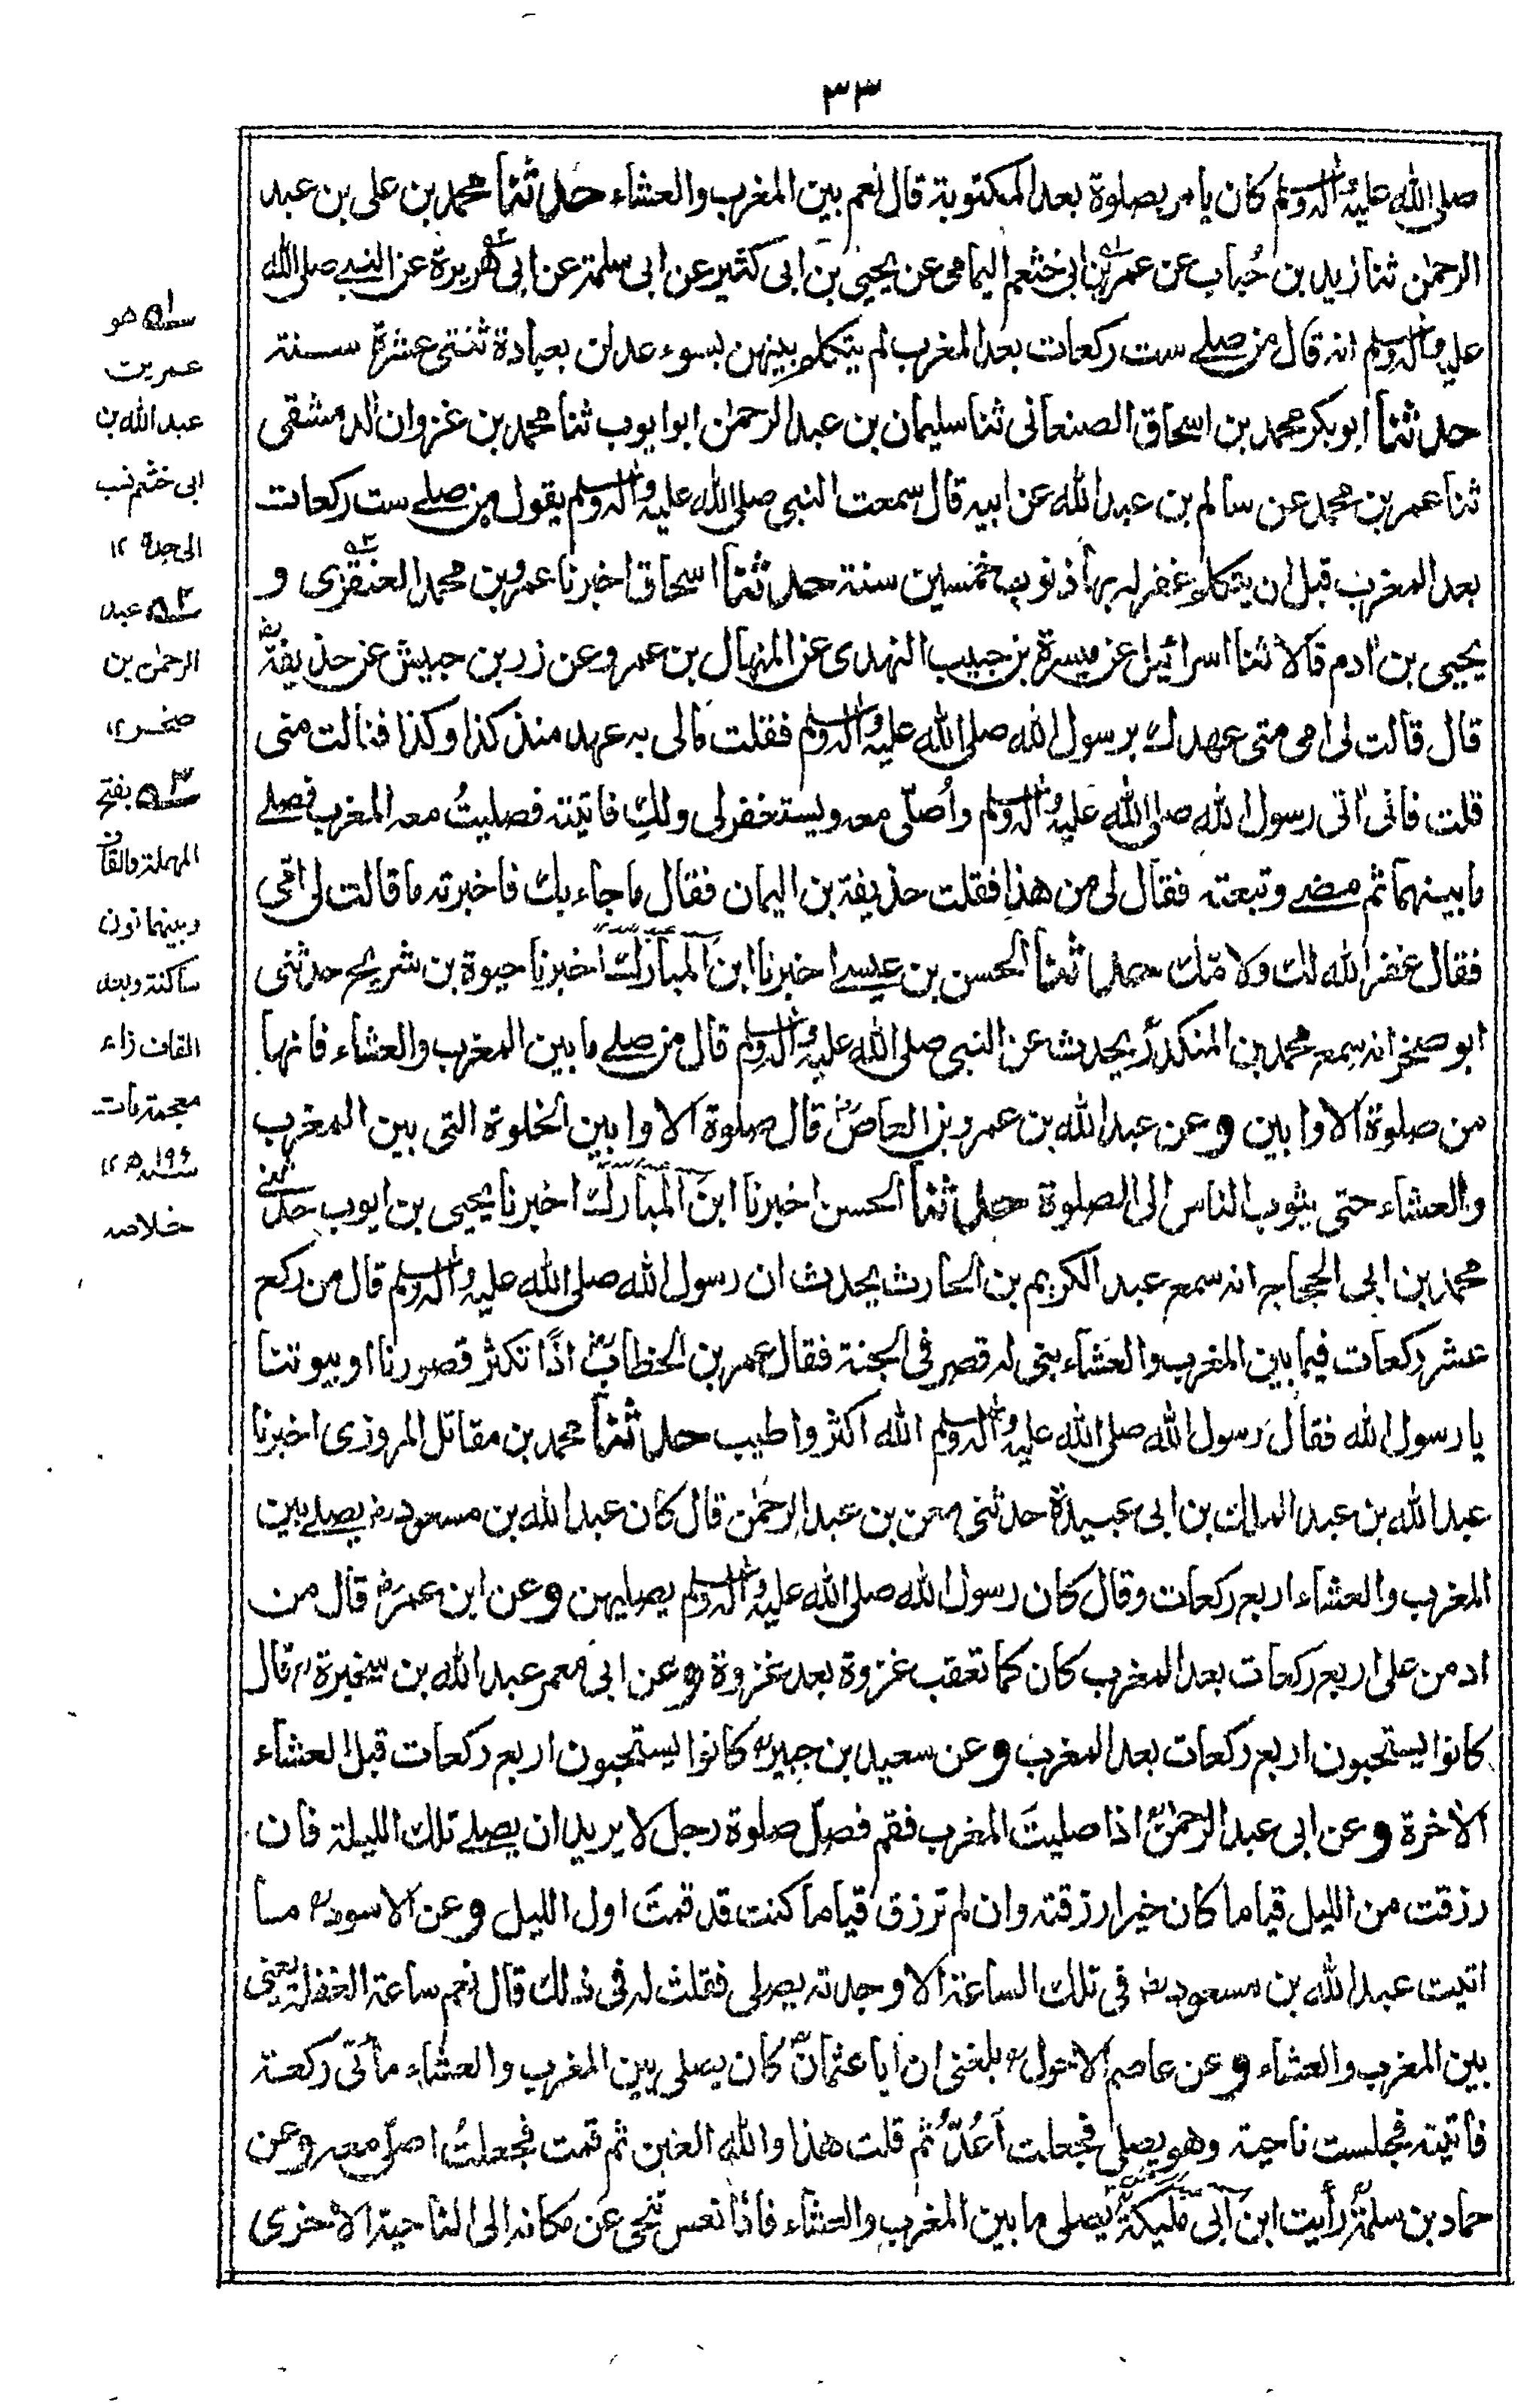 ٣٣
صلى الله عليه واله وسلم كان يامر بصلوة بعد المكتوبة قال نعم بين المغرب والعشاء حدثنا محمد بن على بن عبد
الرحمٰن ثنا زيد بن حُباب عن عمر بن ابى خثعم اليمامى عن يحيى بن ابى كثير عن ابى سلمة عن ابى هريرة عن النبى صلى الله
عليه واله وسلم انه قال من صلے ست ركعات بعد المغرب لم يتكلم بينهن بسوء عدلن بعبادة ثنتى عشرة سنة
حدثنا ابو بكر محمد بن اسحاق الصنعانى ثنا سليمان بن عبد الرحمٰن ابو ايوب ثنا محمد بن غزوان الدمشقى
ثنا عمر بن محمد عن سالم بن عبد الله عن ابيه قال سمعت النبى صلى الله عليه واله وسلم يقول من صلے ست ركعات
بعد المغرب قبل ان يتكلم غفر له بها ذنوب خمسين سنة حدثنا اسحاق اخبرنا عمرو بن محمد العنقزى و
يحيى بن اٰدم قالا ثنا اسرائيل عن ميسرة بن حبيب النهدى عن المنهال بن عمرو عن زر بن حبيش عن حذيفة رض
قال قالت لى امى متى عهدك برسول الله صلى الله عليه واله وسلم فقلت مالى به عهد منذ كذا وكذا فنالت منى
قلت فانى اٰتى رسول الله صلى الله عليه واله وسلم واُصلّى معه ويستغفر لى ولكِ فاتيته فصليتُ معه المغرب فصلے
ما بينهما ثم مضے وتبعته فقال لى من هذا فقلت حذيفة بن اليمان فقال ما جاء بك فاخبرته ما قالت لى امّى
فقال غفر الله لك ولامّك حدثنا الحسن بن عيسے اخبرنا ابن المبارك اخبرنا حيوة بن شريح حدثنى
ابو صخر انه سمع محمد بن المنكدر يحدث عن النبى صلى الله عليه واله وسلم قال من صلے ما بين المغرب والعشاء فانها
من صلوة الاوابين وعن عبد الله بن عمرو بن العاص رض قال صلوة الاوابين الخلوة التى بين المغرب
والعشاء حتى يثوب الناس الى الصلوة حدثنا الحسن اخبرنا ابن المبارك اخبرنا يحيى بن ايوب حدثنے
محمد بن ابى الحجاج انه سمع عبد الكريم بن الحارث يحدث ان رسول الله صلى الله عليه واله وسلم قال من ركع
عشر ركعات فيما بين المغرب والعشاء بنى له قصر فى الجنة فقال عمر بن الخطاب رض اذًا تكثر قصورنا او بيوتنا
يا رسول الله فقال رسول الله صلى الله عليه واله وسلم الله اكثر واطيب حدثنا محمد بن مقاتل المروزى اخبرنا
عبد الله بن عبد الملك بن ابى عبيدة حدثنى معن بن عبد الرحمٰن قال كان عبد الله بن مسعود رض يصلے بين
المغرب والعشاء اربع ركعات وقال كان رسول الله صلى الله عليه واله وسلم يصليهن وعن ابن عمر رض قال من
ادمن على اربع ركعات بعد المغرب كان كما تعقب غزوة بعد غزوة وعن ابى معمر عبد الله بن سخبرة رح قال
كانوا يستحبون اربع ركعات بعد المغرب وعن سعيد بن جبير رح كانوا يستحبون اربع ركعات قبل العشاء
الاٰخرة وعن ابى عبد الرحمٰن رح اذا صليتَ المغرب فقم فصلّ صلوة رجل لا يريد ان يصلے تلك الليلة فان
رزقت من الليل قياما كان خيرا رزقته وان لم ترزق قياما كنت قد قمتَ اول الليل وعن الاسود رح ما
اتيت عبد الله بن مسعود رض فى تلك الساعة الا وجدته يصلى فقلت له فى ذلك قال نعم ساعة الغفلة يعنى
بين المغرب والعشاء وعن عاصم الاحول رح بلغنى ان ابا عثمان رح كان يصلى بين المغرب والعشاء مأتى ركعة
فاتيته فجلست ناحية وهو يصلى فجعلت اَعُدُّ ثم قلت هذا والله الغبن ثم قمت فجعلتُ اصلّى معه وعن
حماد بن سلمة رح رأيت ابن ابى مليكة رح يصلى ما بين المغرب والعشاء فاذا نعس تنحى عن مكانه الى الناحية الاخرى
سله هو
عمر بن
عبد الله بن
ابى خثعم نسب
الى جده ١٢
سله عبد
الرحمٰن بن
صخر ١٢
سله بفتح
المهملة والقاف
وبينهما نون
ساكنة وبعد
القاف زاء
معجمة مات
سنه ١٩٩ه ١٢
خلاصه